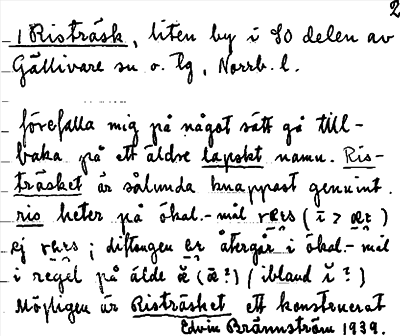 2
1 Risträsk, liten by i SO delen av
Gällivare sn o. tg, Norrb. l.
förefalla mig på något sätt gå till-
baka på ett äldre lapskt namn. Ris-
träsket är sålunda knappast genuint.
ris heter på ökal.-mål
ej; diftongen er återgår i ökal.-mål
i regel på älde ĕ (ibland ĭ?)
Möjligen är Risträsket ett konstruerat
Edvin Brännström 1939.